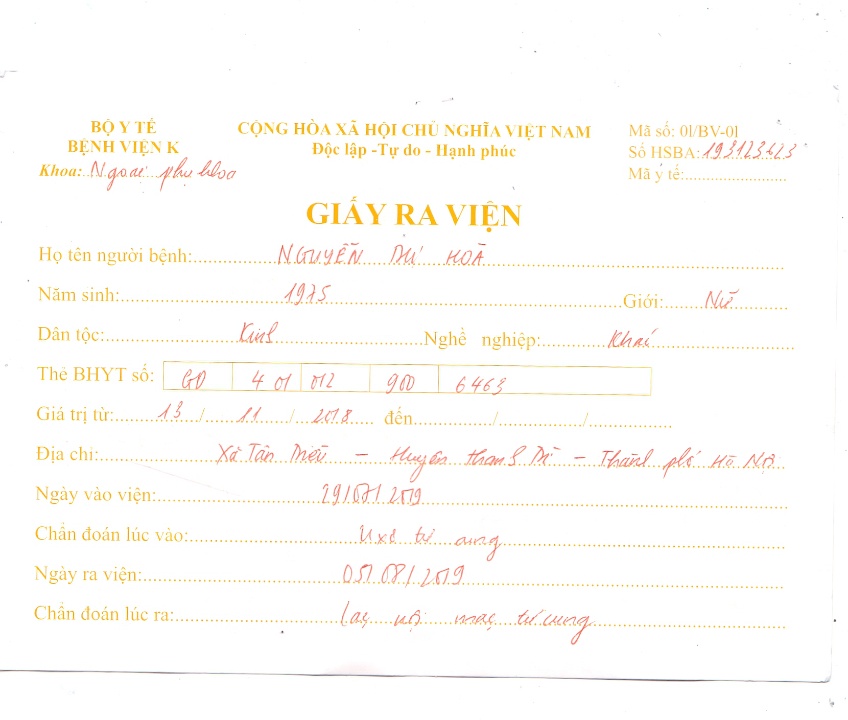 BỘ Y TẾ
BỆNH VIỆN K
Khoa: Ngoại phụ khoa
CỘNG HÒA XÃ HỘI CHỦ NGHĨA VIỆT NAM
Độc lập -Tự do - Hạnh phúc
Mã số: 01/BV-01
Số HSBA: 193123623
Mã y tế:
GIẤY RA VIỆN
Họ tên người bệnh: NGUYỄN DƯ HOÀ
Năm sinh: 1975 Giới: Nữ
Dân tộc: Kinh Nghề nghiệp: Khác
Thẻ BHYT số: GD 4 01 012 900 6463
Giá trị từ: 13 / 11 / 2018 đến / /
Địa chỉ: Xã Tân Triều – Huyện Thanh Trì – Thành phố Hà Nội
Ngày vào viện: 29/07/2019
Chẩn đoán lúc vào: U xơ tử cung
Ngày ra viện: 05/08/2019
Chẩn đoán lúc ra: nội mạc tử cung